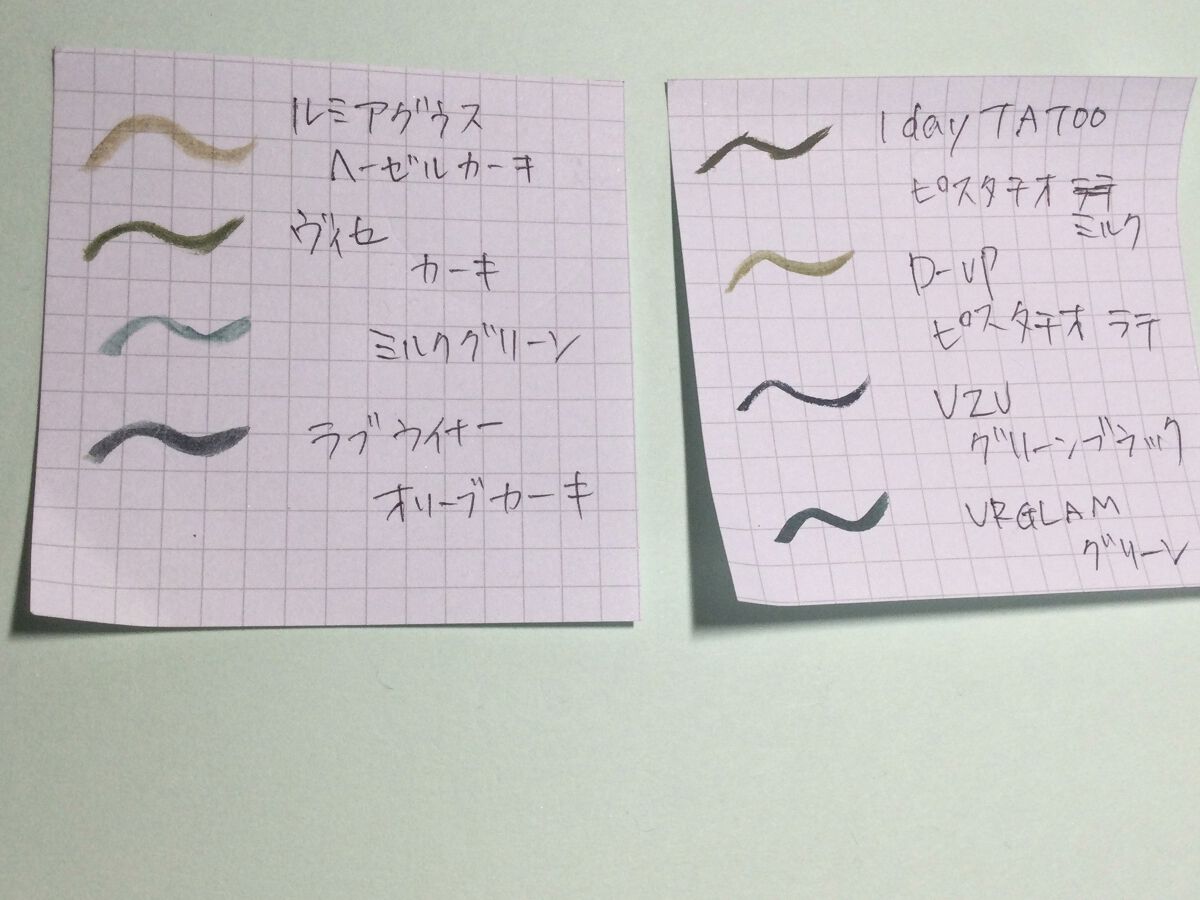 ルミアグウス
ヘーゼルカーキ
ヴィセ
カーキ
ミルクグリーン
ラブウイナー
オリーブカーキ
1day TATOO
ピスタチオ
ミルク
D-UP
ピスタチオ ラテ
UZU
グリーンブラック
URGLAM
グリーン